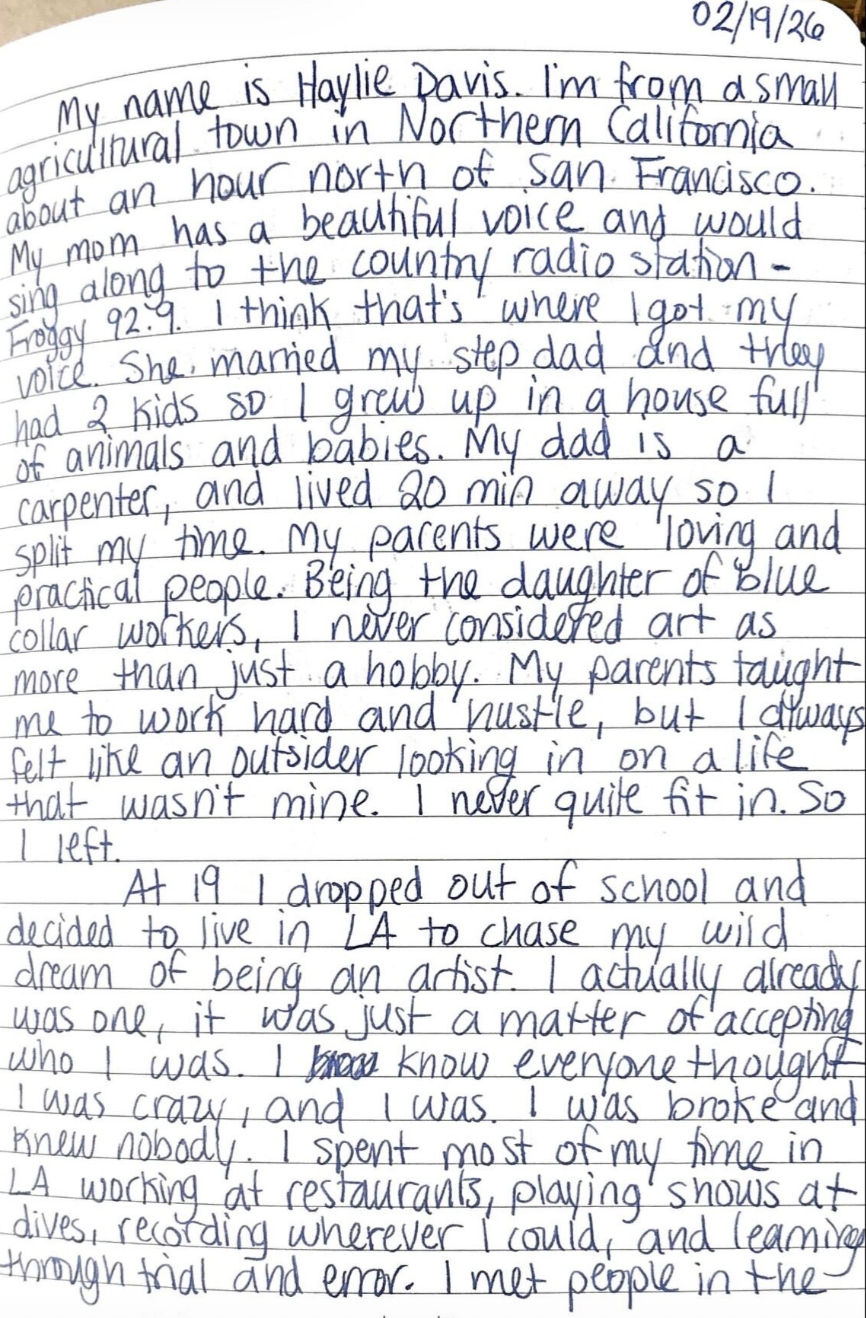 02/19/26
My name is Haylie Davis. I'm from a small
agricultural town in Northern California
about an hour north of San Francisco.
My mom has a beautiful voice and would
sing along to the country radio station -
Froggy 92.9. I think that's where I got my
voice. She married my step dad and they
had 2 kids so I grew up in a house full
of animals and babies. My dad is a
carpenter, and lived 20 min away so I
split my time. My parents were loving and
practical people. Being the daughter of blue
collar workers, I never considered art as
more than just a hobby. My parents taught
me to work hard and hustle, but I always
felt like an outsider looking in on a life
that wasn't mine. I never quite fit in. So
I left.
At 19 I dropped out of school and
decided to live in LA to chase my wild
dream of being an artist. I actually already
was one, it was just a matter of accepting
who I was. I know everyone thought
I was crazy, and I was. I was broke and
knew nobody. I spent most of my time in
LA working at restaurants, playing shows at
dives, recording wherever I could, and learning
through trial and error. I met people in the